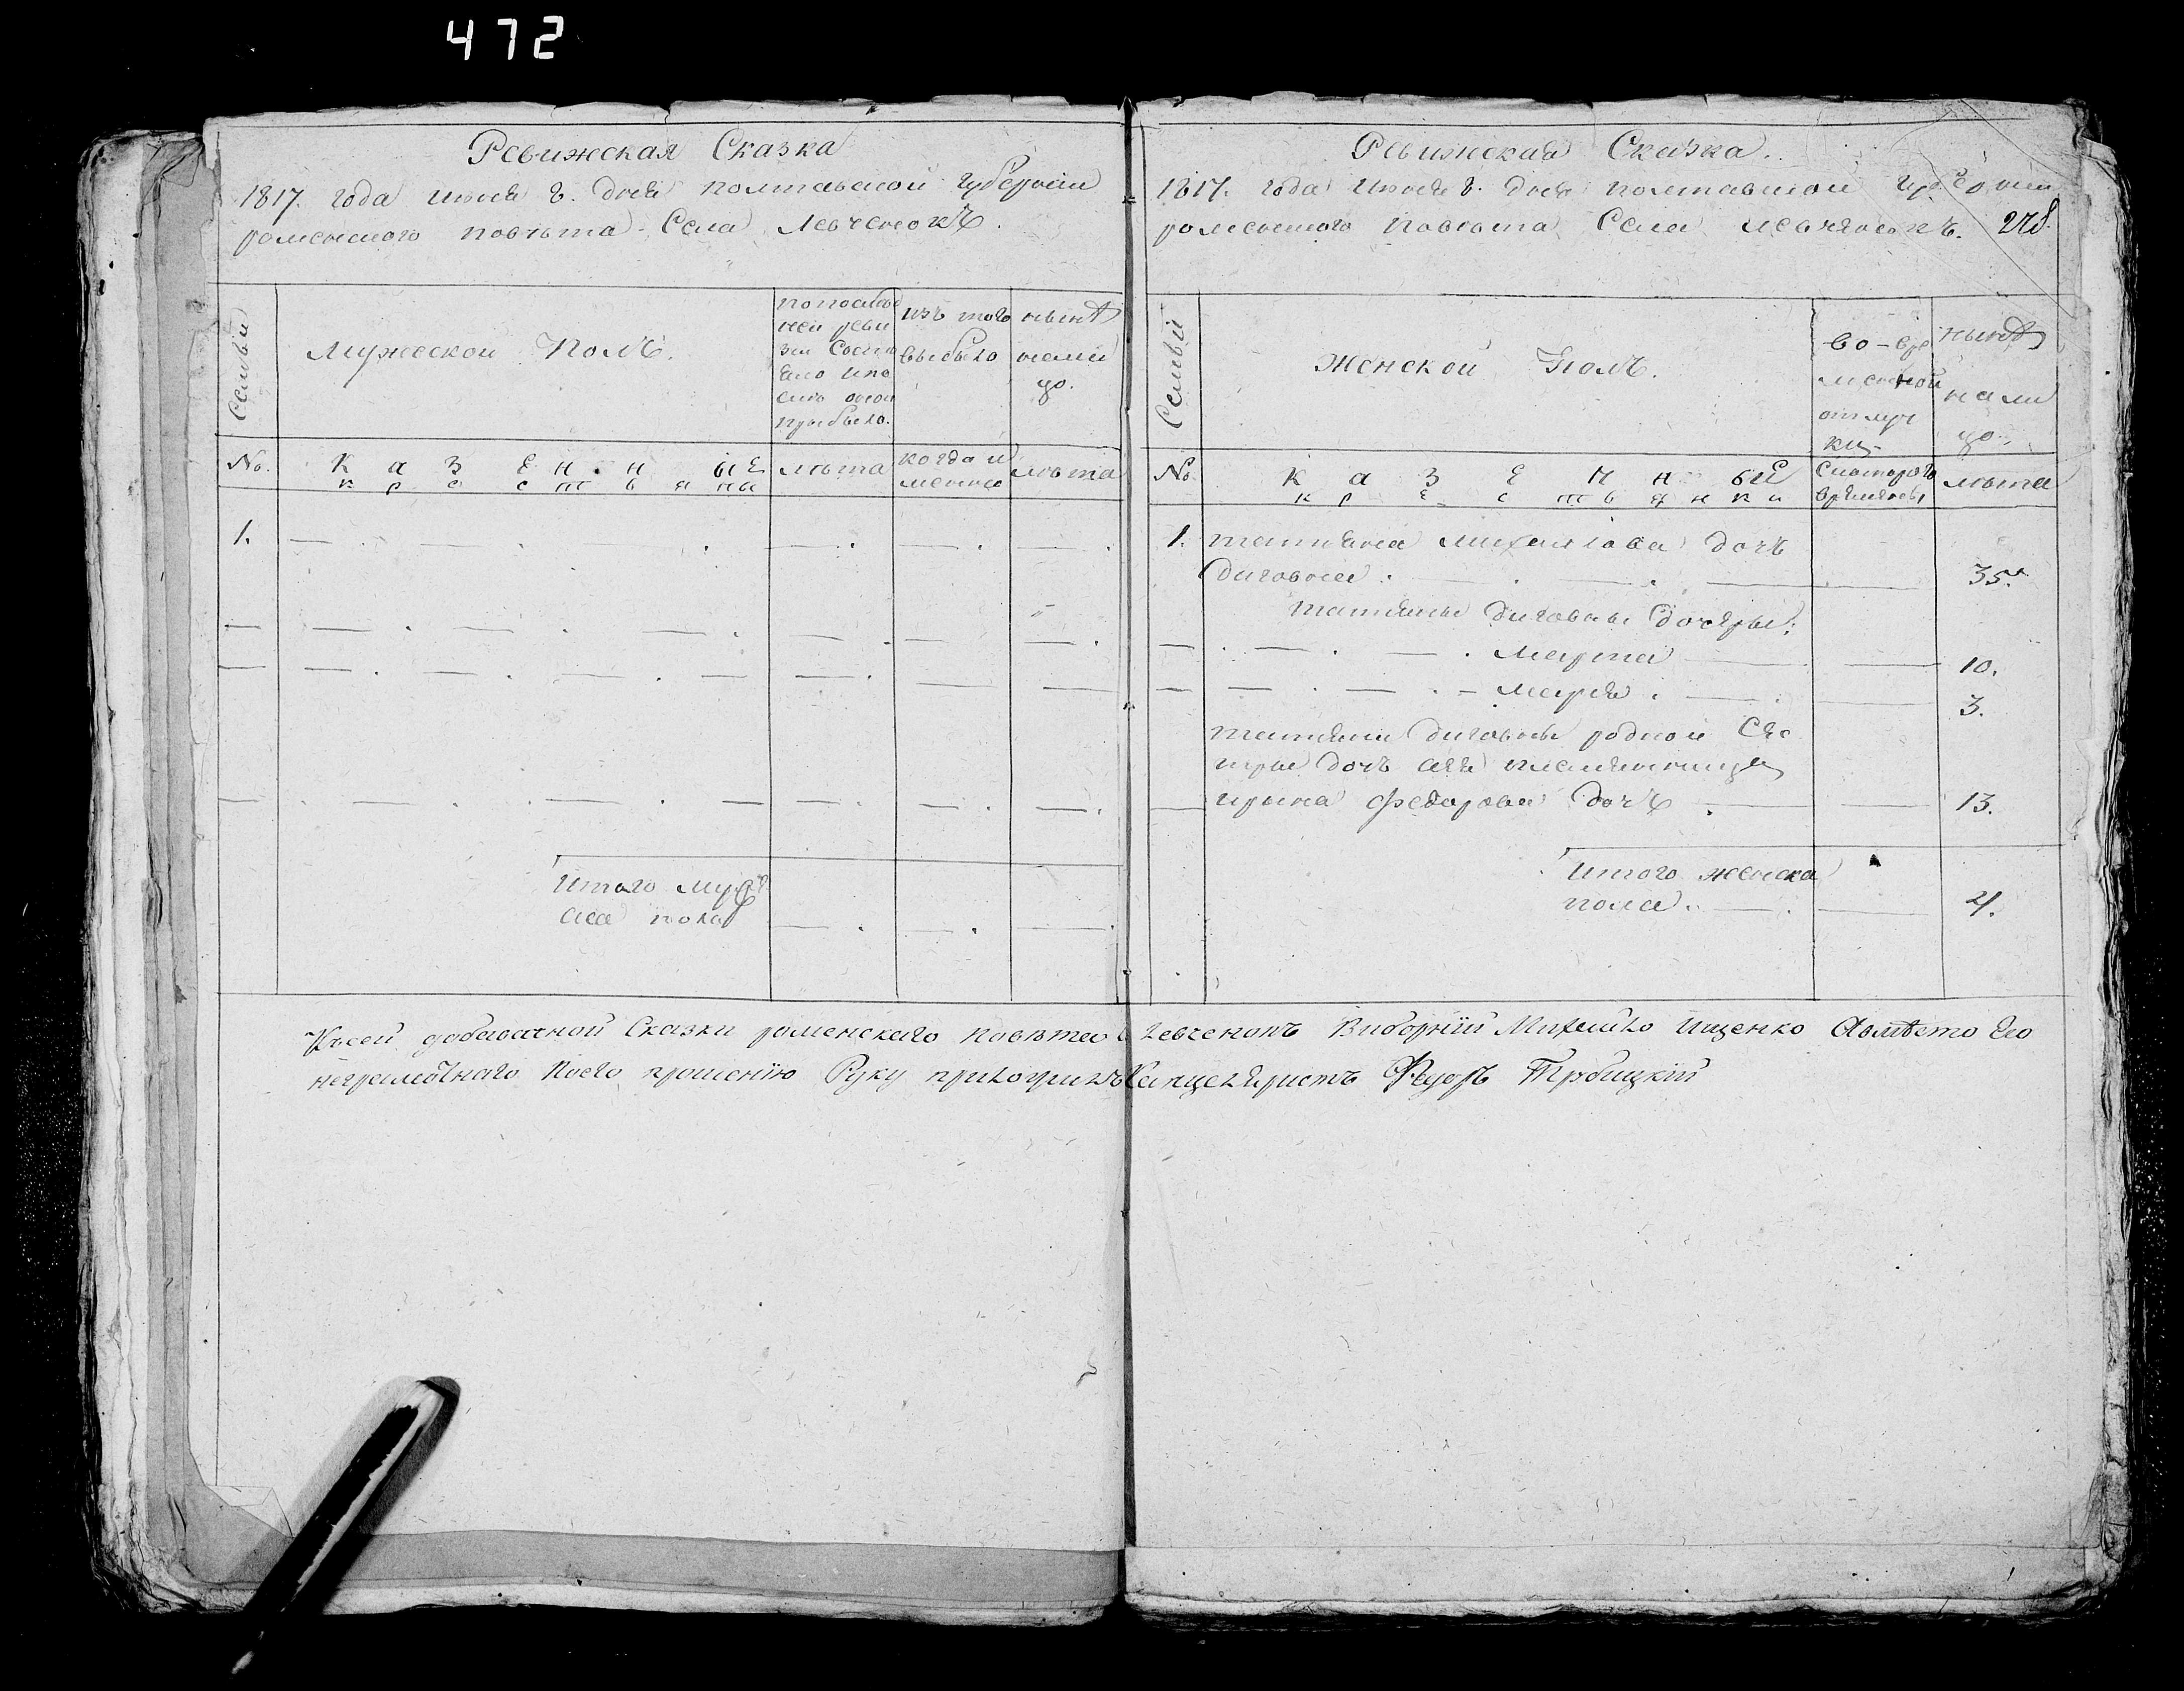 472
Ревижская Сказка
1817. года июня 8. дня полтавской губернии
роменского повѣта Села Левченокъ.
Семьи
Мужеской Полъ.
по послѣд
ней реви
зии состо
яло и по
слѣ оной
прибыло.
изъ того
выбыло
нынѣ
нали
цо.
No.
К а з е н н ые
к р е с т ь я ны
лѣта
когда и
лѣта
1.
Итого муже
ска пола
Ревижская Сказка.
1817. года июня 8. дня полтавской губернии
роменского повѣта Села левченокъ. 278.
Семьи
Женской Полъ.
во-вре
менной
отлуч
ки
нынѣ
нали
цо.
No.
К а з е н н ые
к р е с т ь я н к и
съ которого
времяны
лѣта
1. татияна михайлова дочь
диговна. 35.
татияны диговны дочери:
марта 10.
мария. 3.
татияни диговны родной Сес
тры дочь ея племянница
ирина федорова дочь. 13.
Итого женска
пола. 4.
Къ сей добавачной Сказки роменскаго повѣта С Левченокъ Виборнїй Михайло Ищенко Авмѣсто Его
неграмотнаго Поего прошенїю Руку приложилъ Канцеляристъ Федоръ Трубицкїй